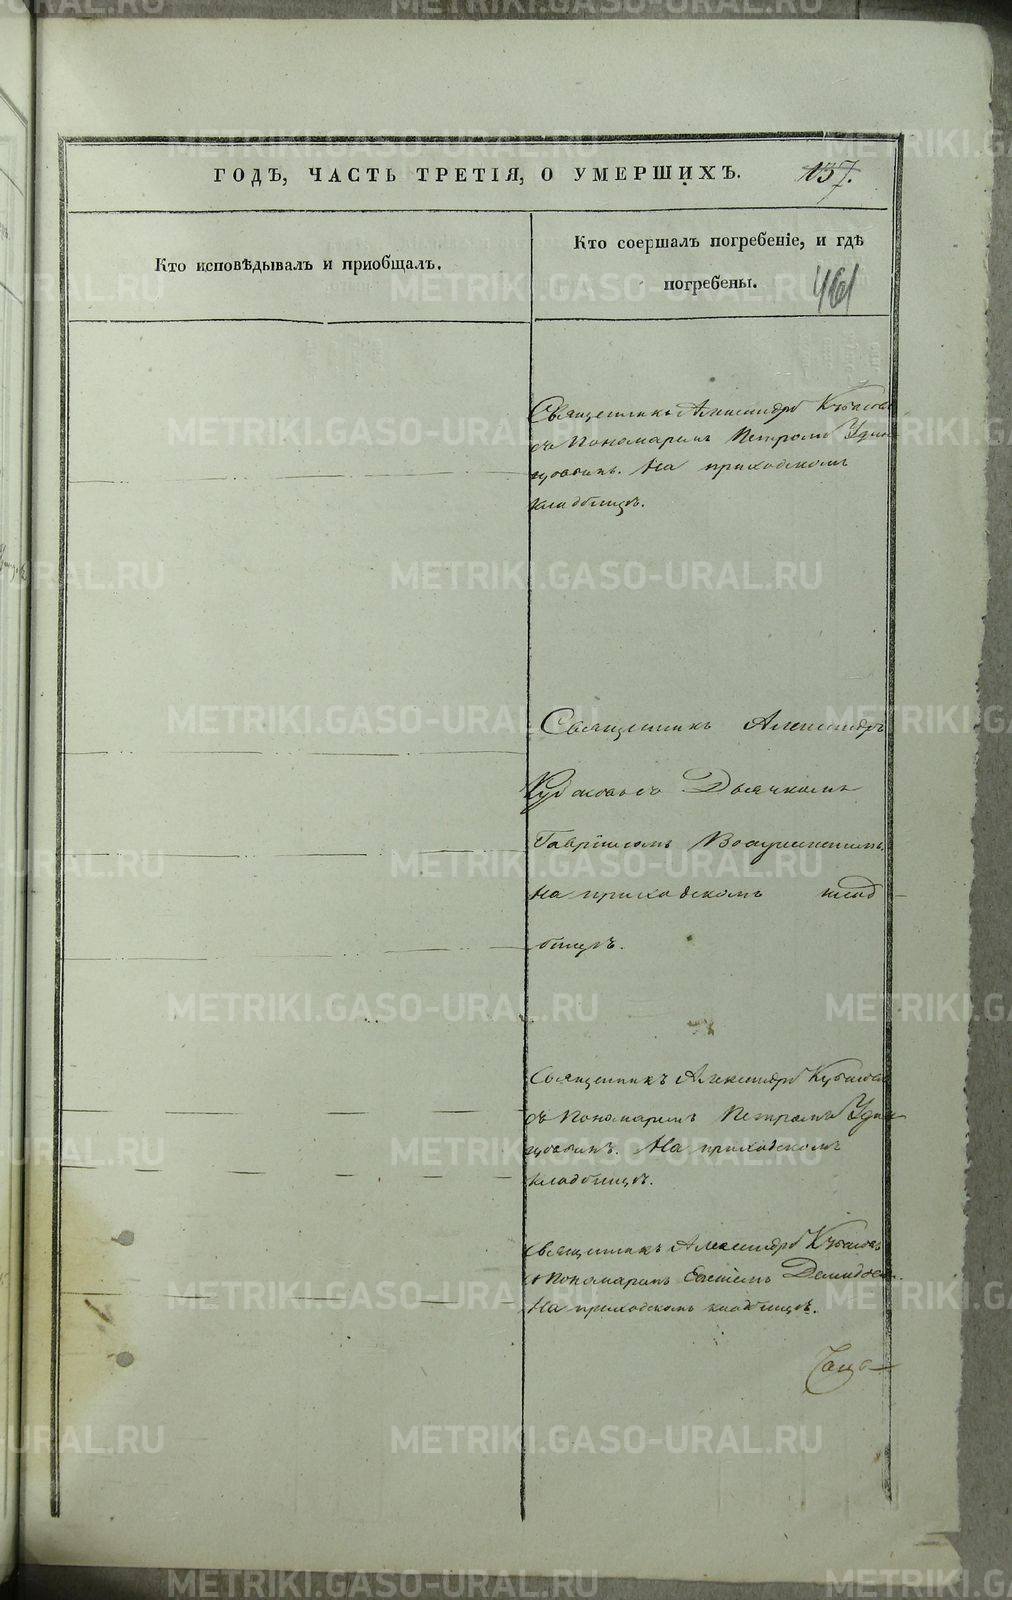 ГОДЪ, ЧАСТЬ ТРЕТІЯ, О УМЕРШИХЪ. 157.
Кто исповѣдывалъ и приобщалъ.
Кто соершалъ погребеніе, и гдѣ
погребены. 461
Священникъ Александръ Кубасовъ
съ Пономаремъ Петромъ Удин
цовымъ. На приходскомъ
кладбищѣ.
Священникъ Александръ
съ Дьячкомъ
Гавріиломъ
на приходскомъ клад
бищѣ.
Священникъ Александръ Кубасовъ
съ Пономаремъ Петромъ Удин
цовымъ. На приходскомъ
кладбищѣ.
Священникъ Александръ Кубасовъ
съ Пономаремъ
На приходскомъ кладбищѣ.
METRIKI.GASO-URAL.RU